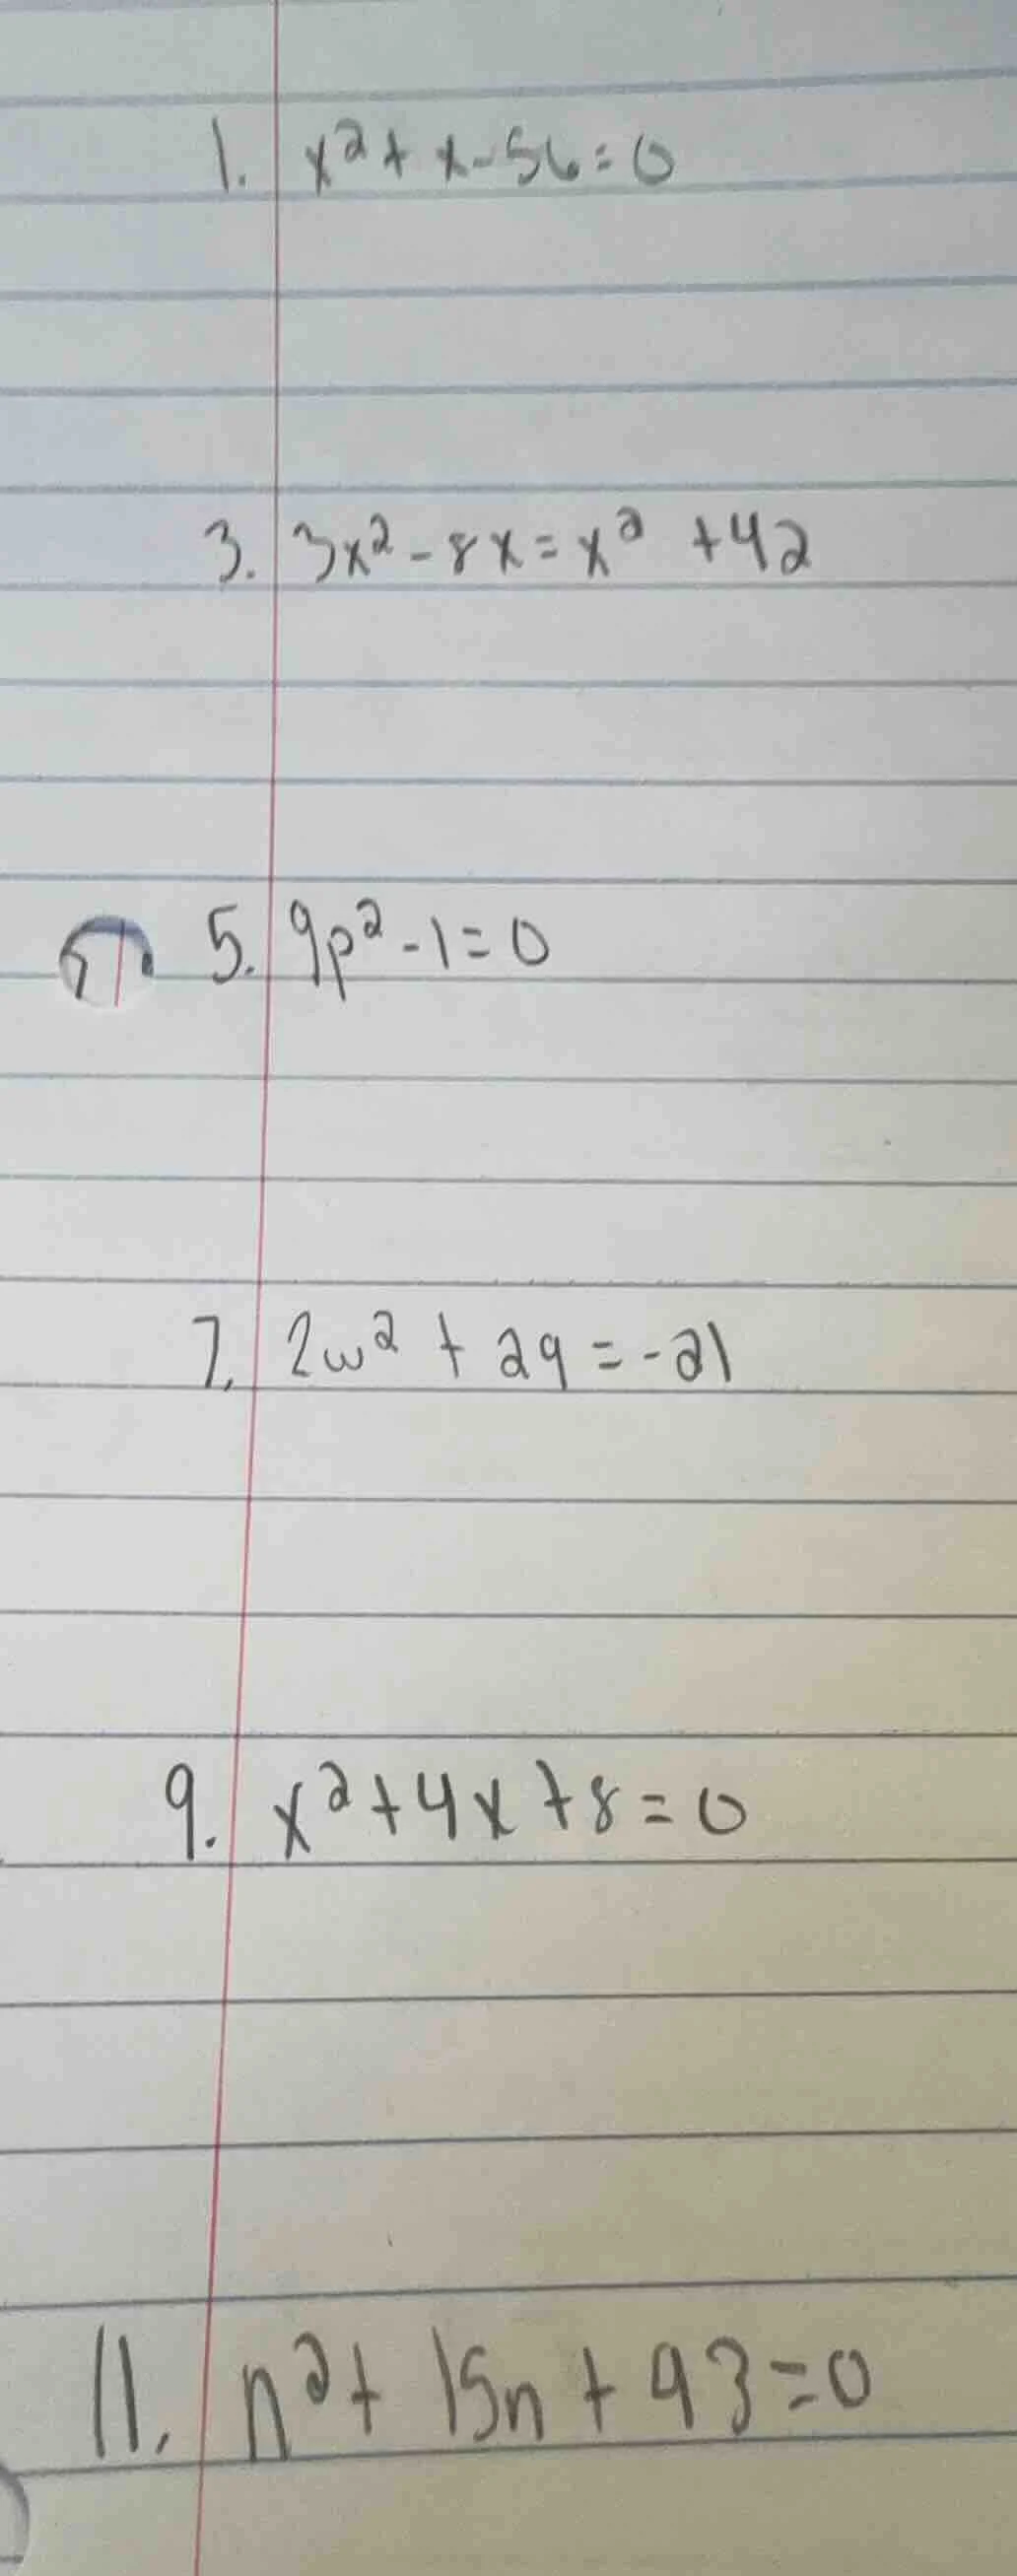 1. x² + x - 56 = 0
3. 3x² - 8x = x² + 42
5. 9p² - 1 = 0
7. 2w² + 29 = -21
9. x² + 4x + 8 = 0
11. n² + 15n + 93 = 0